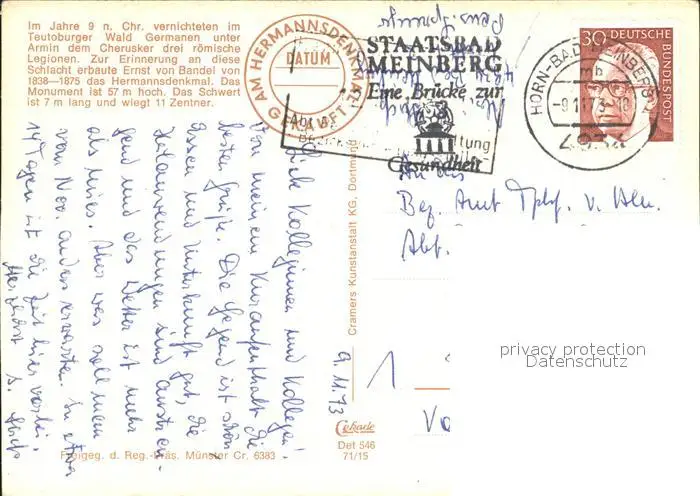 Im Jahre 9 n. Chr. vernichteten im
Teutoburger Wald Germanen unter
Armin dem Cherusker drei römische
Legionen. Zur Erinnerung an diese
Schlacht erbaute Ernst von Bandel von
1838—1875 das Hermannsdenkmal. Das
Monument ist 57 m hoch. Das Schwert
ist 7 m lang und wiegt 11 Zentner.
AM HERMANNSDENKMAL
DATUM
GEKAUFT
STAATSBAD
MEINBERG
Eine Brücke zur
Gesundheit
HORN-BAD MEINBERG
mb
-9.11.73-18
4934
30 DEUTSCHE
BUNDESPOST
Liebe Kolleginnen und Kollegen!
Von meinem Kuraufenthalt die
besten Grüße. Die Gegend ist schön
Essen und Unterkunft gut, die
Kuranwendungen sind anstren-
gend und das Wetter ist mehr
als mies. Aber was soll man
vom Nov. anders erwarten. In etwa
14 Tagen ist die Zeit hier vorbei.
9.11.73
An das
Bez. Amt Tphf. v. Bln.
Abt.
1
Cramers Kunstanstalt KG, Dortmund
Cekade
Det 546
71/15
Freigeg. d. Reg.-Präs. Münster Cr. 6383
privacy protection
Datenschutz